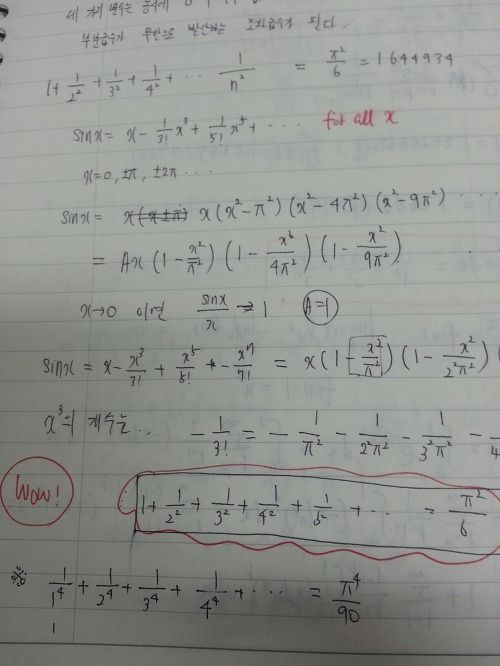 세 가지 변수는
부분급수가 무한으로 발산하는 조화급수가 된다.
1 + 1/2² + 1/3² + 1/4² + ⋯ 1/n² = π²/6 = 1.644934
sinx = x - 1/3! x³ + 1/5! x⁵ + ⋯ for all x
x=0, ±π, ±2π ⋯
sinx = x(x±π) x(x²-π²)(x²-4π²)(x²-9π²) ⋯
= Ax(1-x²/π²)(1-x²/4π²)(1-x²/9π²)
x→0 이면 sinx/x → 1 A=1
sinx = x - x³/3! + x⁵/5! - x⁷/7! = x(1-x²/π²)(1-x²/2²π²)
x³의 계수는.. -1/3! = -1/π² - 1/2²π² - 1/3²π² -
Wow!
1 + 1/2² + 1/3² + 1/4² + 1/5² + ⋯ = π²/6
1/1⁴ + 1/2⁴ + 1/3⁴ + 1/4⁴ + ⋯ = π⁴/90
1